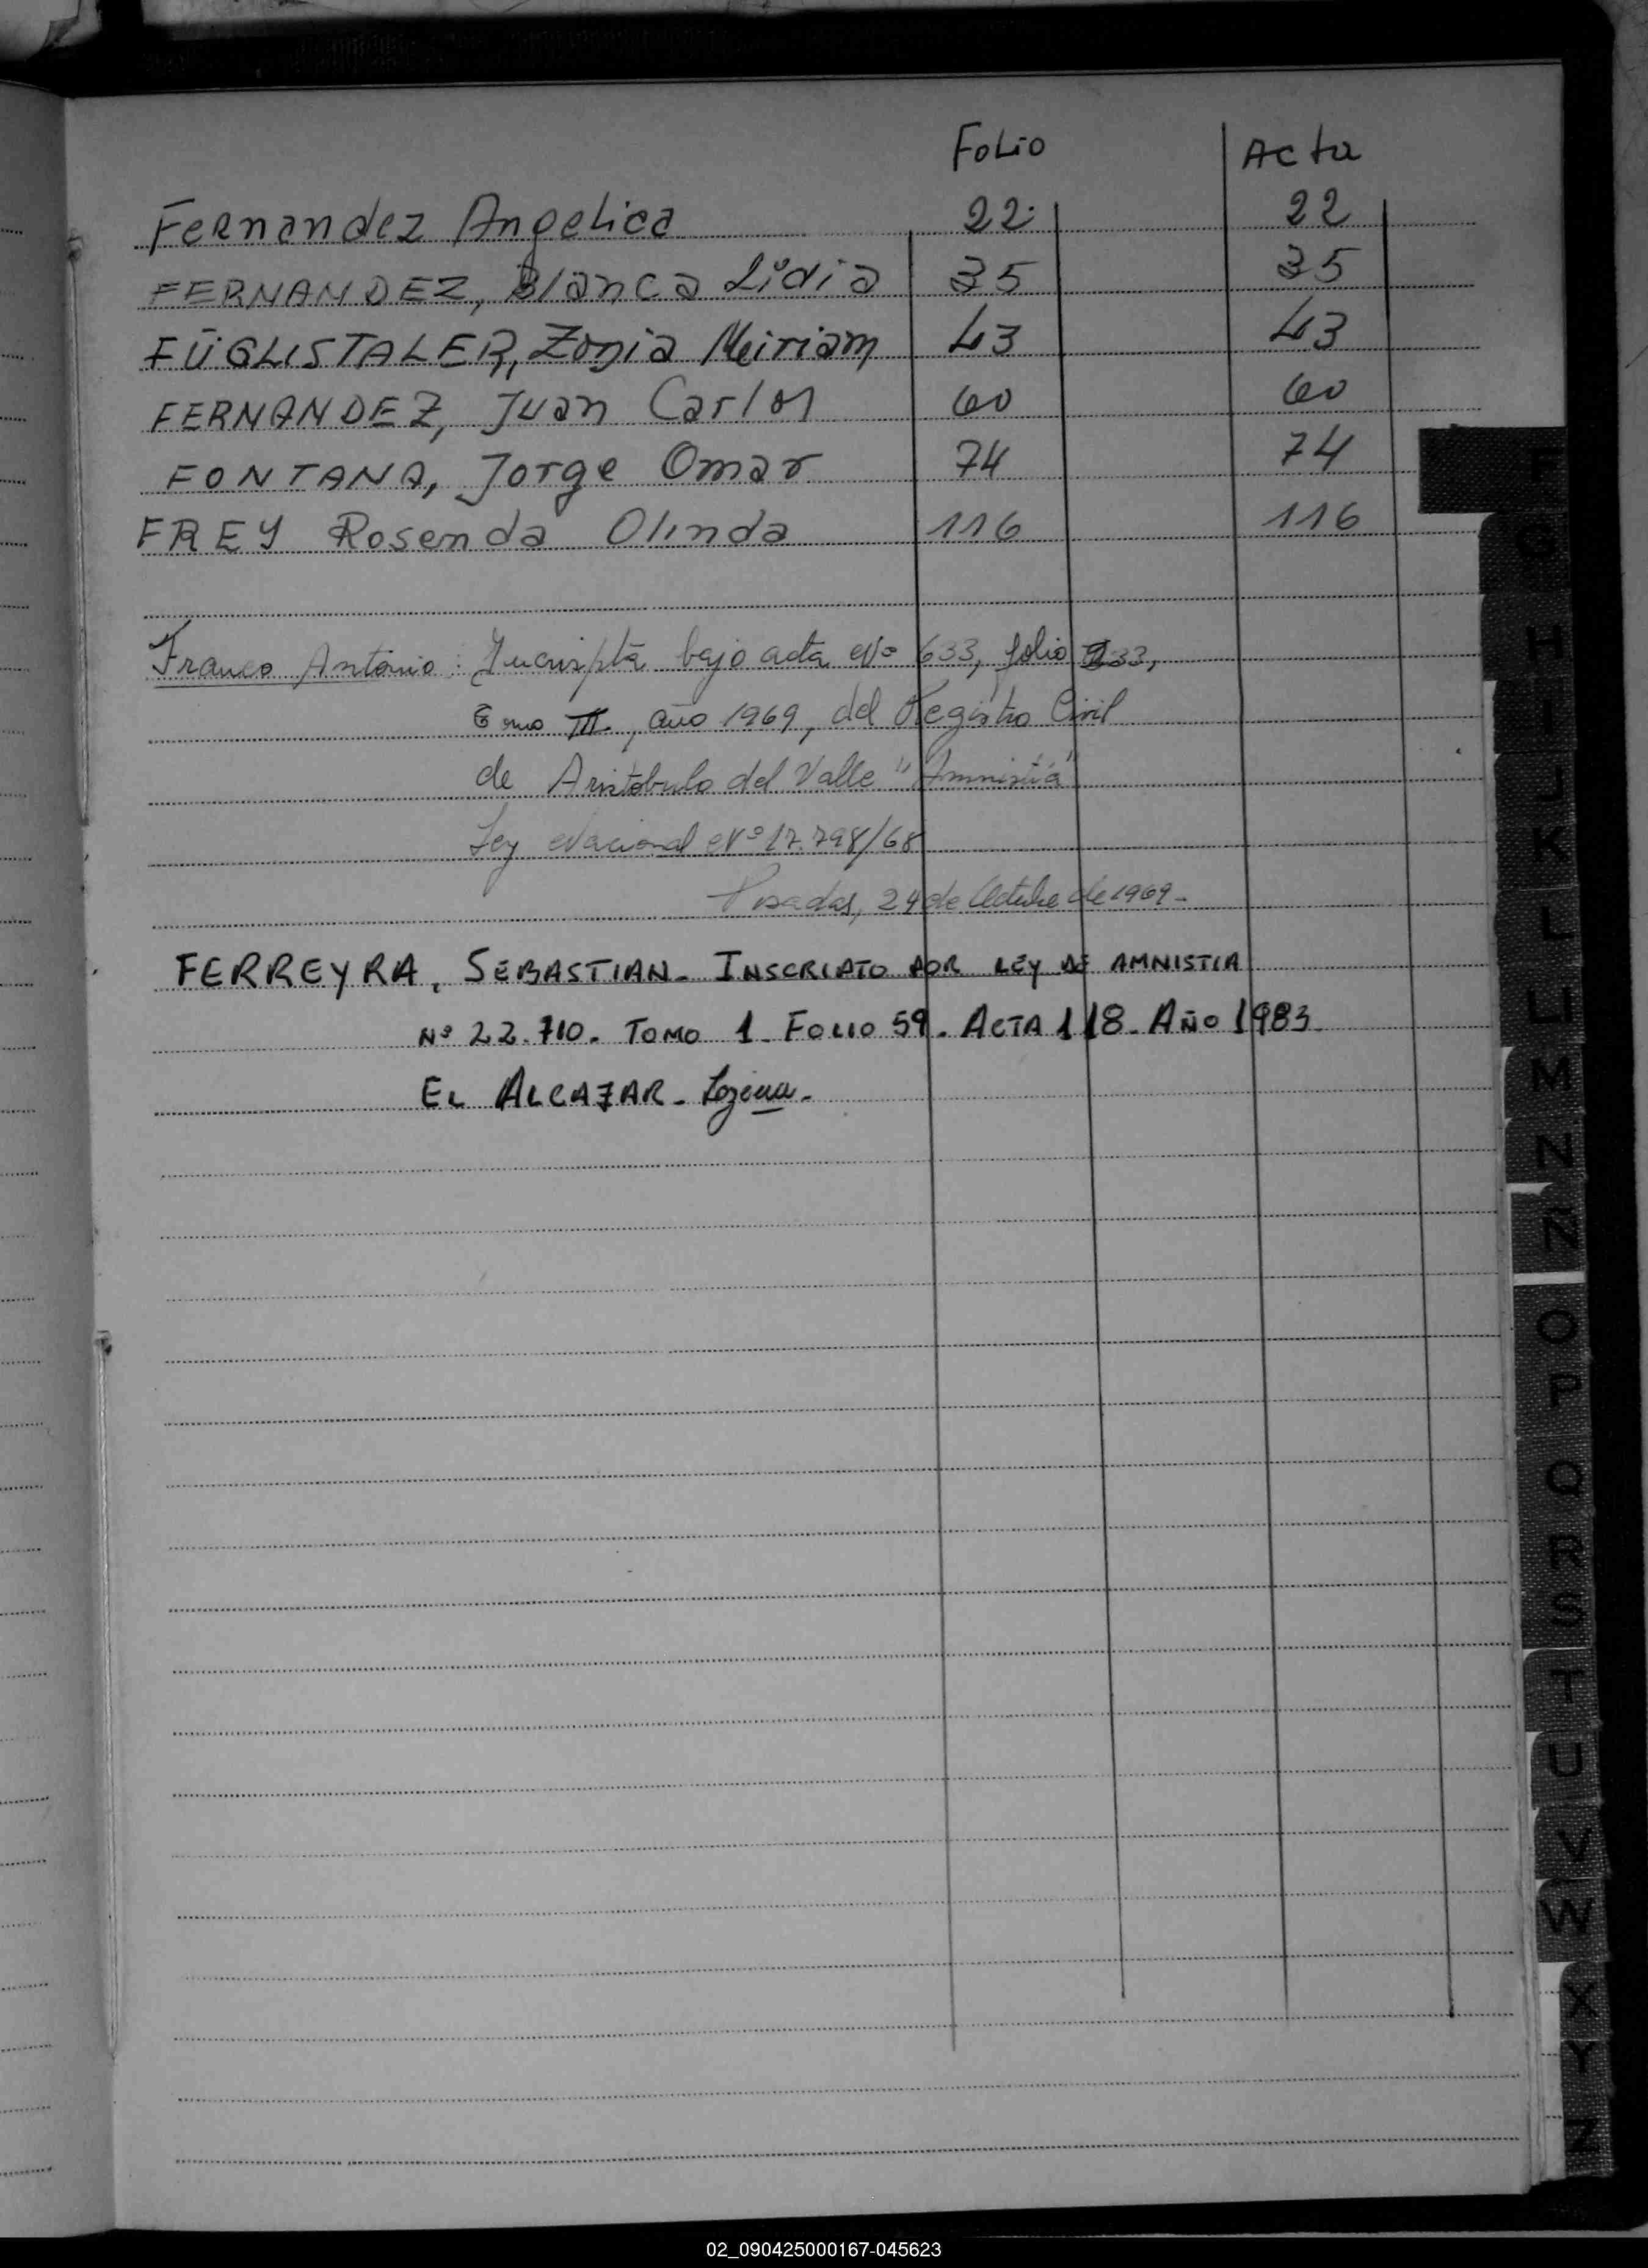 Folio Acta
Fernandez Angelica 22 22
FERNANDEZ, Blanca Lidia 35 35
FÜGLISTALER, Zonia Miriam 43 43
FERNANDEZ, Juan Carlos 60 60
FONTANA, Jorge Omar 74 74
FREY Rosenda Olinda 116 116
Franco Antonio: Inscripta bajo acta Nº 633, folio 233,
Tomo III, año 1969, del Registro Civil
de Aristóbulo del Valle "Amnistía"
Ley Nacional Nº 17.798/68
Posadas, 24 de Octubre de 1969.-
FERREYRA, SEBASTIAN- INSCRIPTO POR LEY DE AMNISTIA
Nº 22.710. TOMO 1- FOLIO 59. ACTA 118- AÑO 1983-
EL ALCAZAR-
F
G
H
I
J
K
L
LL
M
N
Ñ
O
P
Q
R
S
T
U
V
W
X
Y
Z
02_090425000167-045623